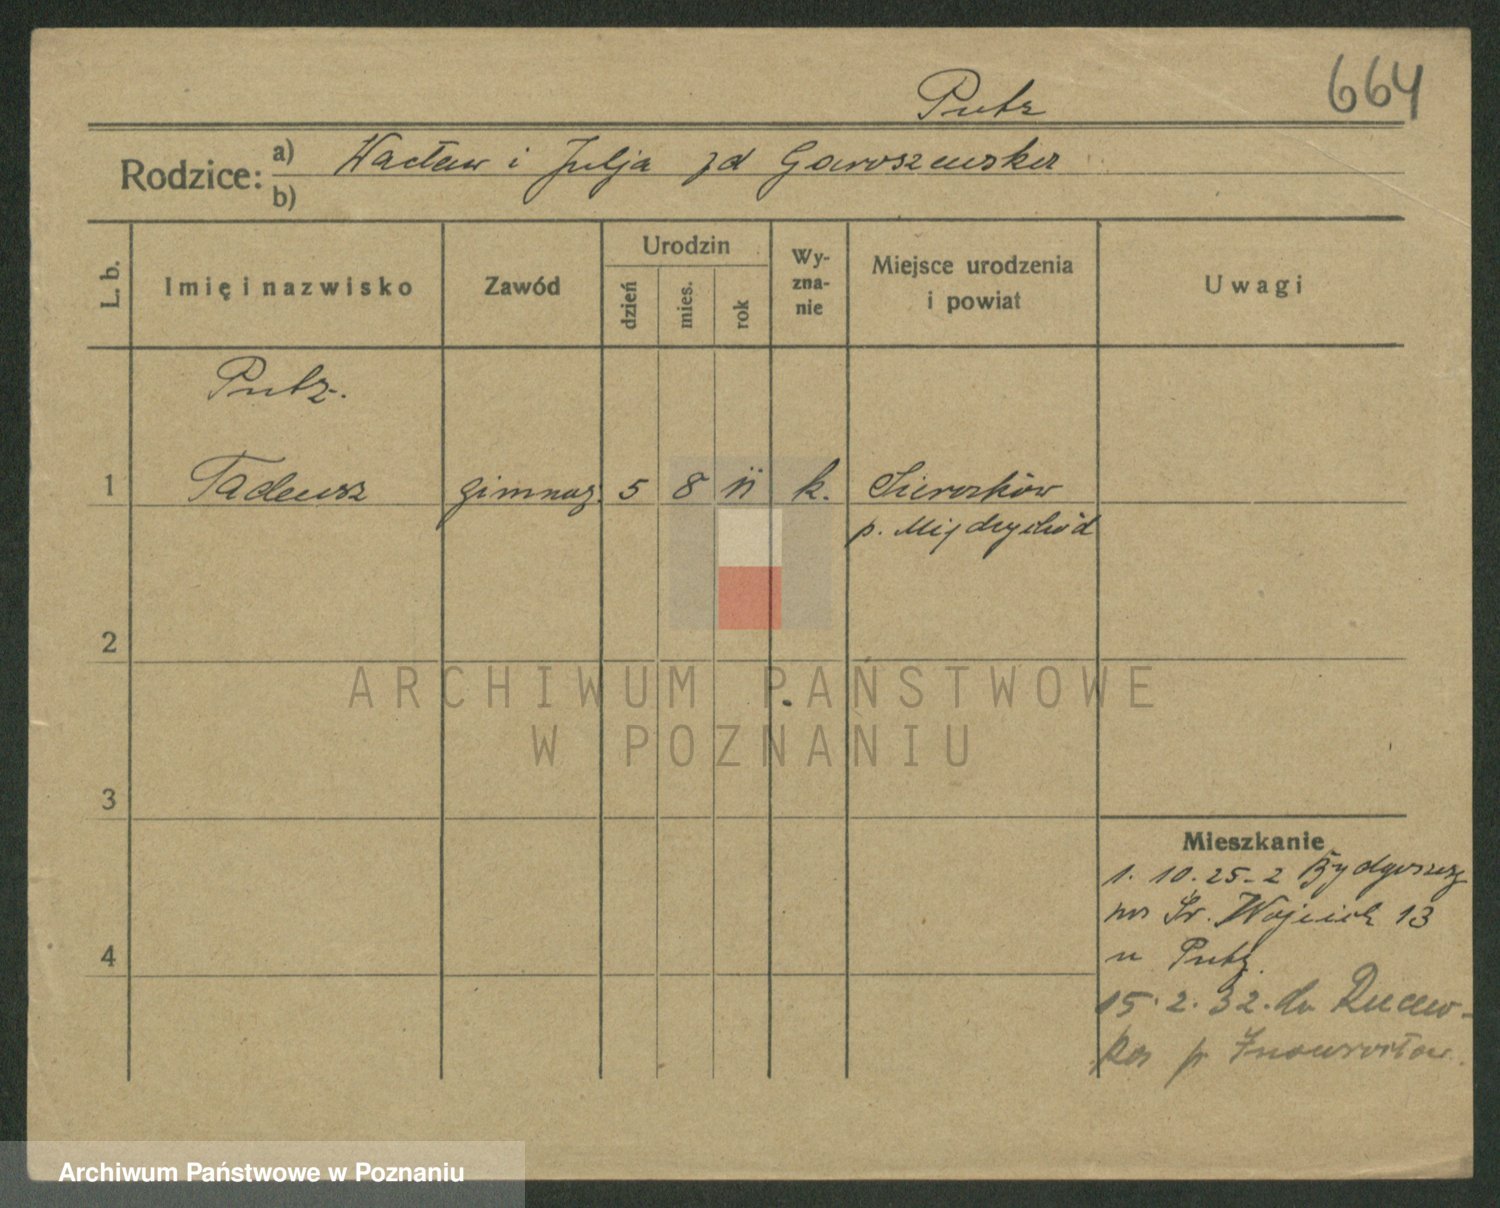 664
Putz
Rodzice: a) Wacław i Julja zd Garoszewska
b)
L. b.
Imię i nazwisko
Zawód
Urodzin
dzień
mies.
rok
Wy-
zna-
nie
Miejsce urodzenia
i powiat
Uwagi
Putz.
1 Tadeusz gimnaz. 5 8 11 k. Sieraków
p. Międzychód
2
ARCHIWUM PAŃSTWOWE
W POZNANIU
3
Mieszkanie
1. 10. 25 - z Bydgoszcz
na Św. Wojciech 13
4
u Putz.
15. 2. 32. do
p Inowrocław.
Archiwum Państwowe w Poznaniu